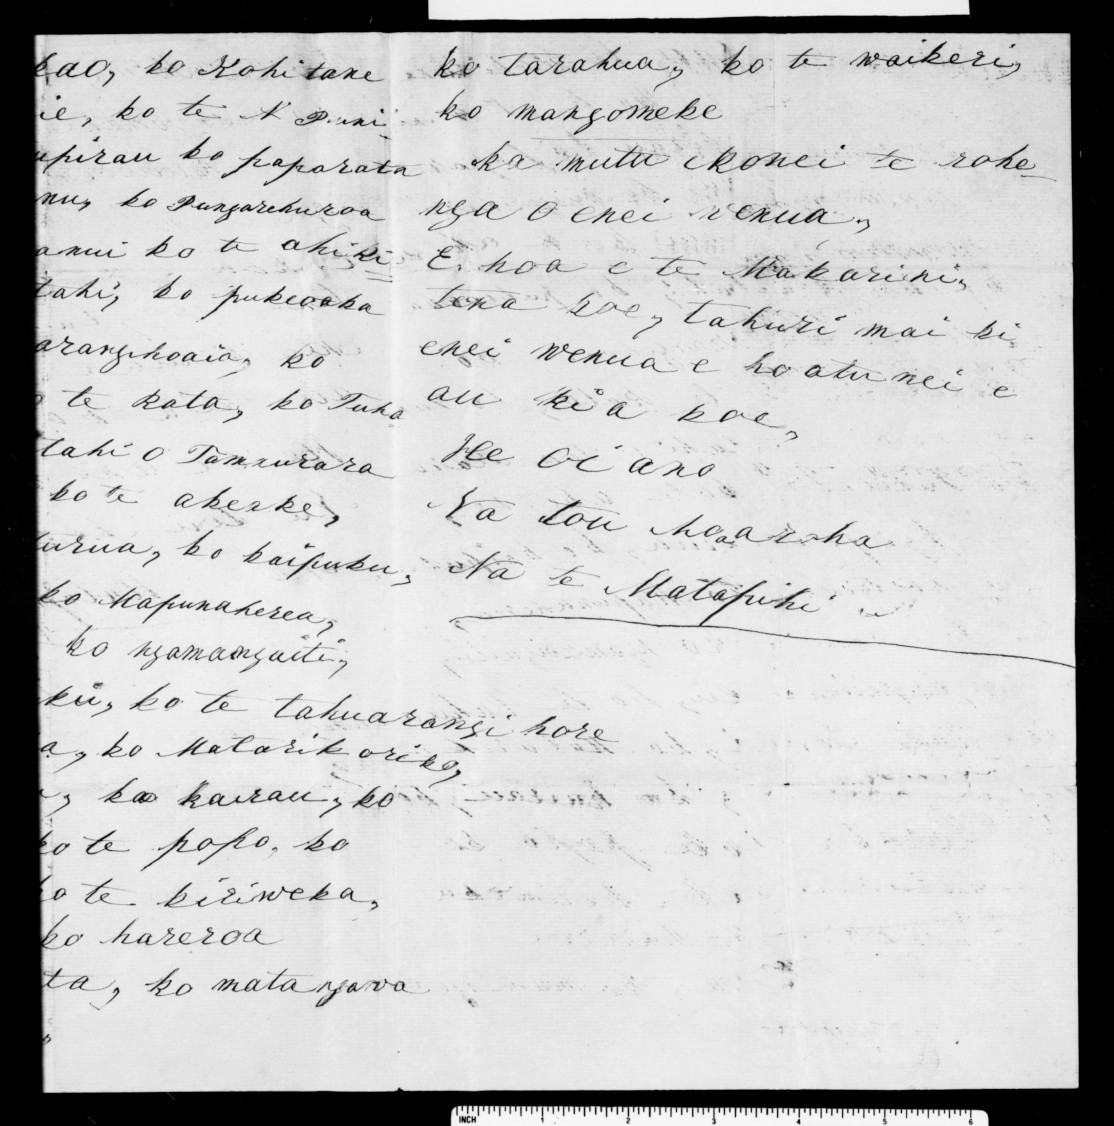 kao, ko Kohitane
ie, ko te N Puni
upirau ko paparata
nu, ko Pungarehuroa
anui ko te ahiki
tahi, ko pukeoaka
arangihoaia, ko
te Rata, ko Tuha
tahi o Tamaurara
ko te akeake,
urua, ko kaipuku,
ko Mapunakerea,
ko ngamangaiti,
kü, ko te tahuarangi hore
a, ko Matarikoriko,
ko kairau, ko
ko te popo, ko
ko te kiriweka,
ko hareroa
ta, ko matangawa
ko tarahua, ko te waikeri,
ko mangomeke
ka mutu ikonei te rohe
nga o enei wenua,
E hoa e te Makarini,
tena koe, tahuri mai ki
enei wenua e hoatu nei e
au ki a koe,
He oi ano
Na tou hoa aroha
Na te Matapihi
INCH 1 2 3 4 5 6